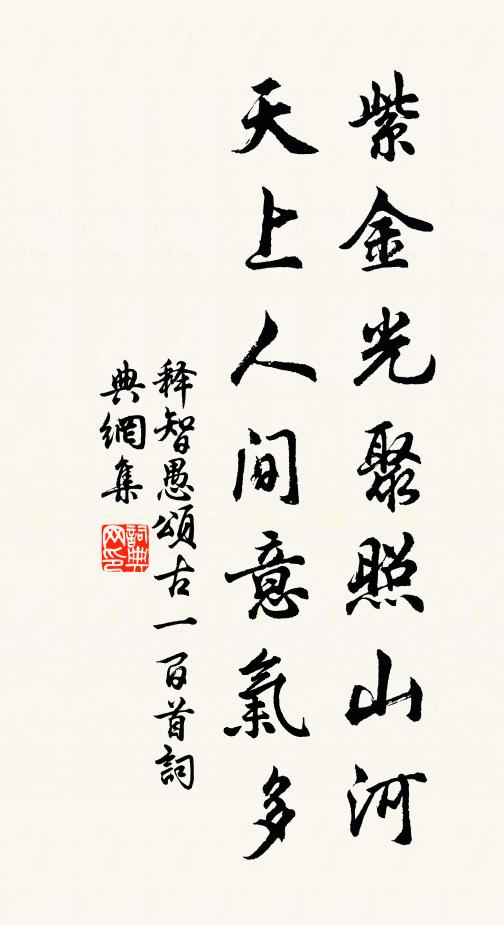 紫金光聚照山河
天上人间意氣多
释智愚頌古一百首詞
典網集
詞典
网印